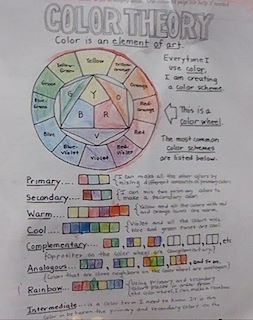 COLOR THEORY
Color is an element of art.
Everytime I
use color,
I am creating
a color scheme.
This is a
color wheel.
The most common
color schemes
are listed below.
Yellow
Yellow-Orange
Orange
Red-Orange
Red
Red-Violet
Violet
Blue-Violet
Blue
Blue-Green
Green
Yellow-Green
Y
O
R
V
B
G
Primary....
I can make all the other colors by
mixing different amounts of
Secondary....
I can mix two primary colors to
make a Secondary color.
Warm....
Yellow and all the colors with red
and orange tones are warm.
Cool....
Violet and all the colors with
blue and green tones are cool
Complementary.... , etc
(Opposites on the color wheel are Complementary)
Analogous.... and so on.
(Colors that are close neighbors on the color wheel are analogous)
Rainbow....
Using primary and secondary
colors placed in order from
the color wheel, I can make a rainbow
Intermediate - is a color term I need to know. It is the
color in between the primary and secondary colors on the